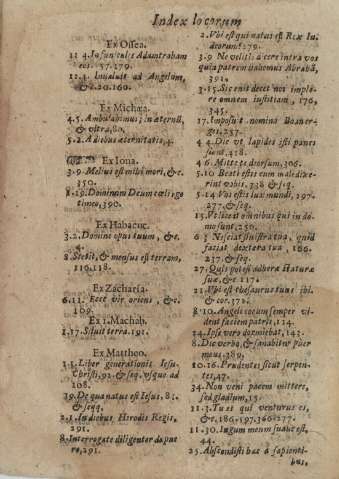 Index locorum
Ex Osea.
11 4. In funiculis Adam traham
eos. 37.279.
12.4. Inualuit ad Angelum,
&c.20.160.
Ex Michæa.
4.5. Ambulabimus; in æternũ,
& vltra, 80.
5.2. A diebus æternitatis, 4.
Ex Iona.
3.9. Melius est mihi mori, &c.
350.
8.19. Dominum Deum cœli ego
timeo, 390.
Ex Habacuc.
3.2. Domine opus tuum, &c.
4.
8. Stetit, & mensus est terram,
116.118.
Ex Zacharia.
6.11. Ecce vir oriens, &c.
109.
Ex 1. Machab.
1.37. Siluit terra, 191.
Ex Mattheo.
1.1. Liber generationis Iesu
Christi, 92. & seq. vsque ad
108.
39. De qua natus est Iesus, 81.
& seqq.
2.1. In diebus Hirodis Regis,
291.
8. Interrogate diligenter de pue
ro, 291.
2. Vbi est qui natus est Rex Iu-
dæorum? 279.
3.9. Ne velitis dicere intra vos
quia patrem habemus Abrahã,
391.
3.15. Sic enim decet nos implè
re omnem iustitiam, 176,
345.
17. Imposuit nomina Boaner-
ges, 257.
4 4. Dic vt lapides isti panes
fiant, 418.
4 6. Mitte te deorsum, 306.
5.10. Beati estis cum maledixe
rint vobis, 238 & seq.
5.14. Vos estis lux mundi, 197.
277. & seq.
15. Vt luceat omnibus qui in do
mo sunt, 250.
6.3. Nesciat sinistra tua, quid
faciat dextera tua, 186.
237. & seq.
27. Quis potest adhere staturæ
suæ, &c. 117.
21. Vbi est thesaurus tuus ibi,
& cor, 372.
8 10. Angeli eorum semper vi-
dent faciem patris, 124.
24. Ipse verò dormiebat, 143.
8. Dic verbo, & sanabitur puer
meus, 289,
10.16. Prudentes sicut serpen-
tes, 47.
34. Non veni pacem mittere,
sed gladium, 15.
11.3. Tu es qui venturus es,
&c, 186.197.366.277.
11.30. Iugum meum suaue est,
44.
25. Abscondisti hæc à sapienti-
bus,